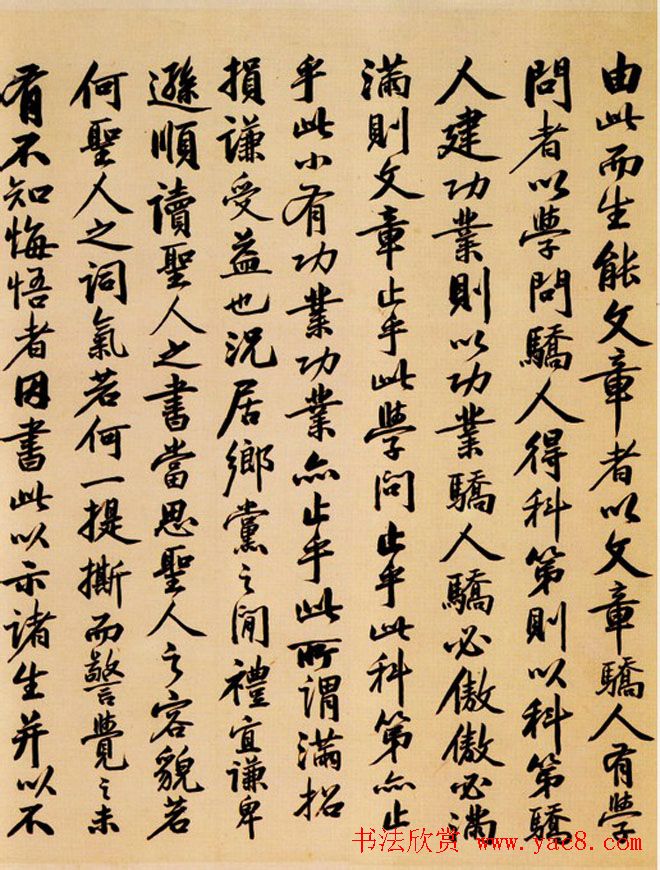 由此而生能文章者以文章驕人有學
問者以學問驕人得科第則以科第驕
人建功業則以功業驕人驕必傲傲必滿
滿則文章止乎此學问止乎此科第亦止
乎此小有功業功業亦止乎此所謂滿招
損謙受益也況居鄉黨之間禮宜謙卑
遜順讀聖人之書當思聖人之容貌若
何聖人之詞氣若何一提撕而警覺之未
有不知悔悟者因書此以示諸生并以不
书法欣赏 www.yac8.com